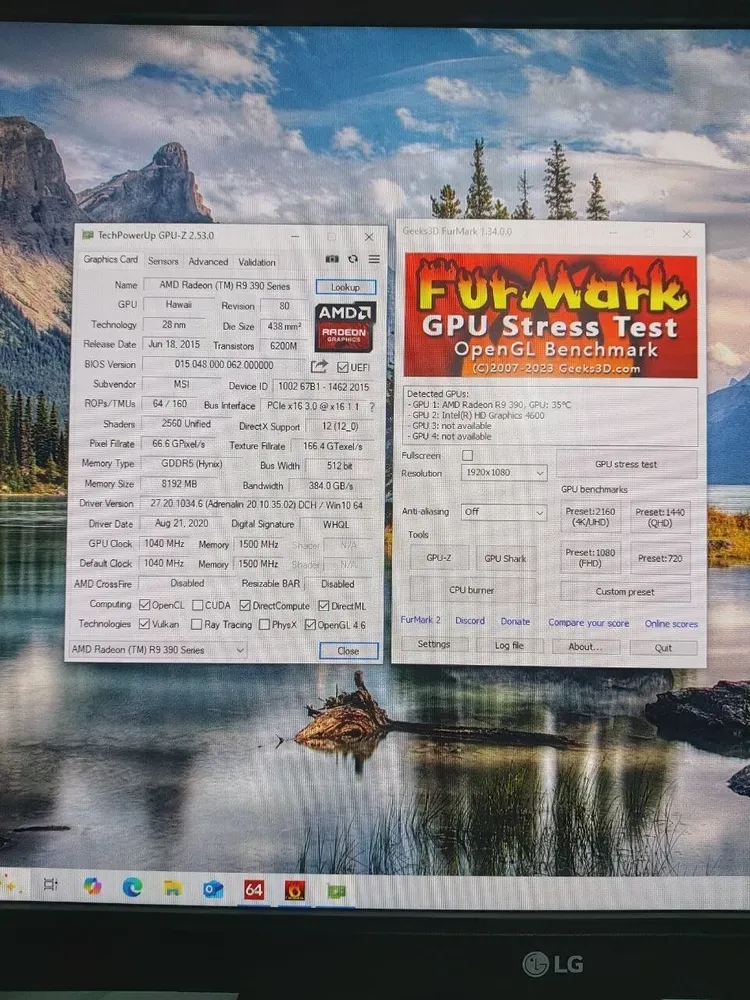 TechPowerUp GPU-Z 2.53.0
Graphics Card Sensors Advanced Validation
Name AMD Radeon (TM) R9 390 Series Lookup
GPU Hawaii Revision 80
AMD RADEON GRAPHICS
Technology 28 nm Die Size 438 mm²
Release Date Jun 18, 2015 Transistors 6200M
BIOS Version 015.048.000.062.000000 UEFI
Subvendor MSI Device ID 1002 67B1 - 1462 2015
ROPs/TMUs 64 / 160 Bus Interface PCIe x16 3.0 @ x16 1.1 ?
Shaders 2560 Unified DirectX Support 12 (12_0)
Pixel Fillrate 66.6 GPixel/s Texture Fillrate 166.4 GTexel/s
Memory Type GDDR5 (Hynix) Bus Width 512 bit
Memory Size 8192 MB Bandwidth 384.0 GB/s
Driver Version 27.20.1034.6 (Adrenalin 20.10.35.02) DCH / Win10 64
Driver Date Aug 21, 2020 Digital Signature WHQL
GPU Clock 1040 MHz Memory 1500 MHz Shader N/A
Default Clock 1040 MHz Memory 1500 MHz Shader N/A
AMD CrossFire Disabled Resizable BAR Disabled
Computing OpenCL CUDA DirectCompute DirectML
Technologies Vulkan Ray Tracing PhysX OpenGL 4.6
AMD Radeon (TM) R9 390 Series Close
Geeks3D FurMark 1.34.0.0
FurMark
GPU Stress Test
OpenGL Benchmark
(C)2007-2023 Geeks3D.com
Detected GPUs:
- GPU 1: AMD Radeon R9 390, GPU: 35°C
- GPU 2: Intel(R) HD Graphics 4600
- GPU 3: not available
- GPU 4: not available
Fullscreen
Resolution 1920x1080 GPU stress test
GPU benchmarks
Anti-aliasing Off Preset:2160 (4K/UHD) Preset:1440 (QHD)
Tools
GPU-Z GPU Shark Preset:1080 (FHD) Preset:720
CPU burner Custom preset
FurMark 2 Discord Donate Compare your score Online scores
Settings Log file About... Quit
64
LG